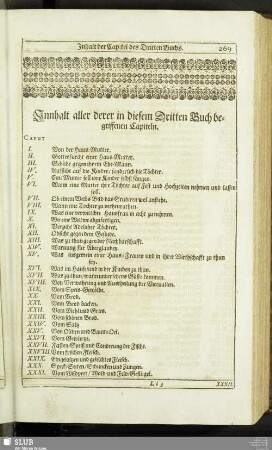 Inhalt der Capitel des Dritten Buchs. 269
Innhalt aller derer in diesem Dritten Buch be-
griffenen Capiteln.
Caput
I. Von der Haus-Mutter.
II. Gottesfurcht einer Haus-Mutter.
III. Gebühr gegen ihrem Ehe-Mann.
IV. Aufsicht auf die Kinder, sonderlich die Töchter.
V. Eine Mutter soll ihre Kinder selbst säugen.
VI. Wann eine Mutter ihre Töchter auf Fest und Hochzeiten nehmen und lassen
soll.
VII. Ob einem Weibs-Bild das Studiren wol anstehe.
VIII. Wann eine Tochter zu verheyrathen.
IX. Was eine vernünftige Hausfrau in acht zu nehmen.
X.
XI. Vorzahl Adelicher Töchter.
XII. Obsicht gegen dem Gesinde.
XIII. Was zu thun gegen der Nachbarschafft.
XIV. Warnung für Aberglauben.
XV. Was insgemein einer Haus-Frauen und in ihrer Wirthschafft zu thun
sey.
XVI. Was im Haus und in der Kuchen zu thun.
XVII.
XVIII. Von Verwahrung und Ausspeisung der Victualien.
XIX. Vom Speis-Gewölbe.
XX. Vom Brod.
XXI. Vom Brod backen.
XXII. Von Mehl und Gries.
XXIII. Von schönen Brod.
XXIV. Vom Saltz.
XXV. Von Oliven und Baum-Oel.
XXVI. Von Gewürtz.
XXVII. Fasten-Speiß und Sonderung der Fische.
XXVIII. Von frischen Fleisch.
XXIX. Eingesaltzen und geselchtes Fleisch.
XXX. Speck-Seiten, Schuncken und Zungen.
XXXI. Vom Wildpret, Wild und Feder-Geflügel.
Ll 3 XXXII.
SLUB